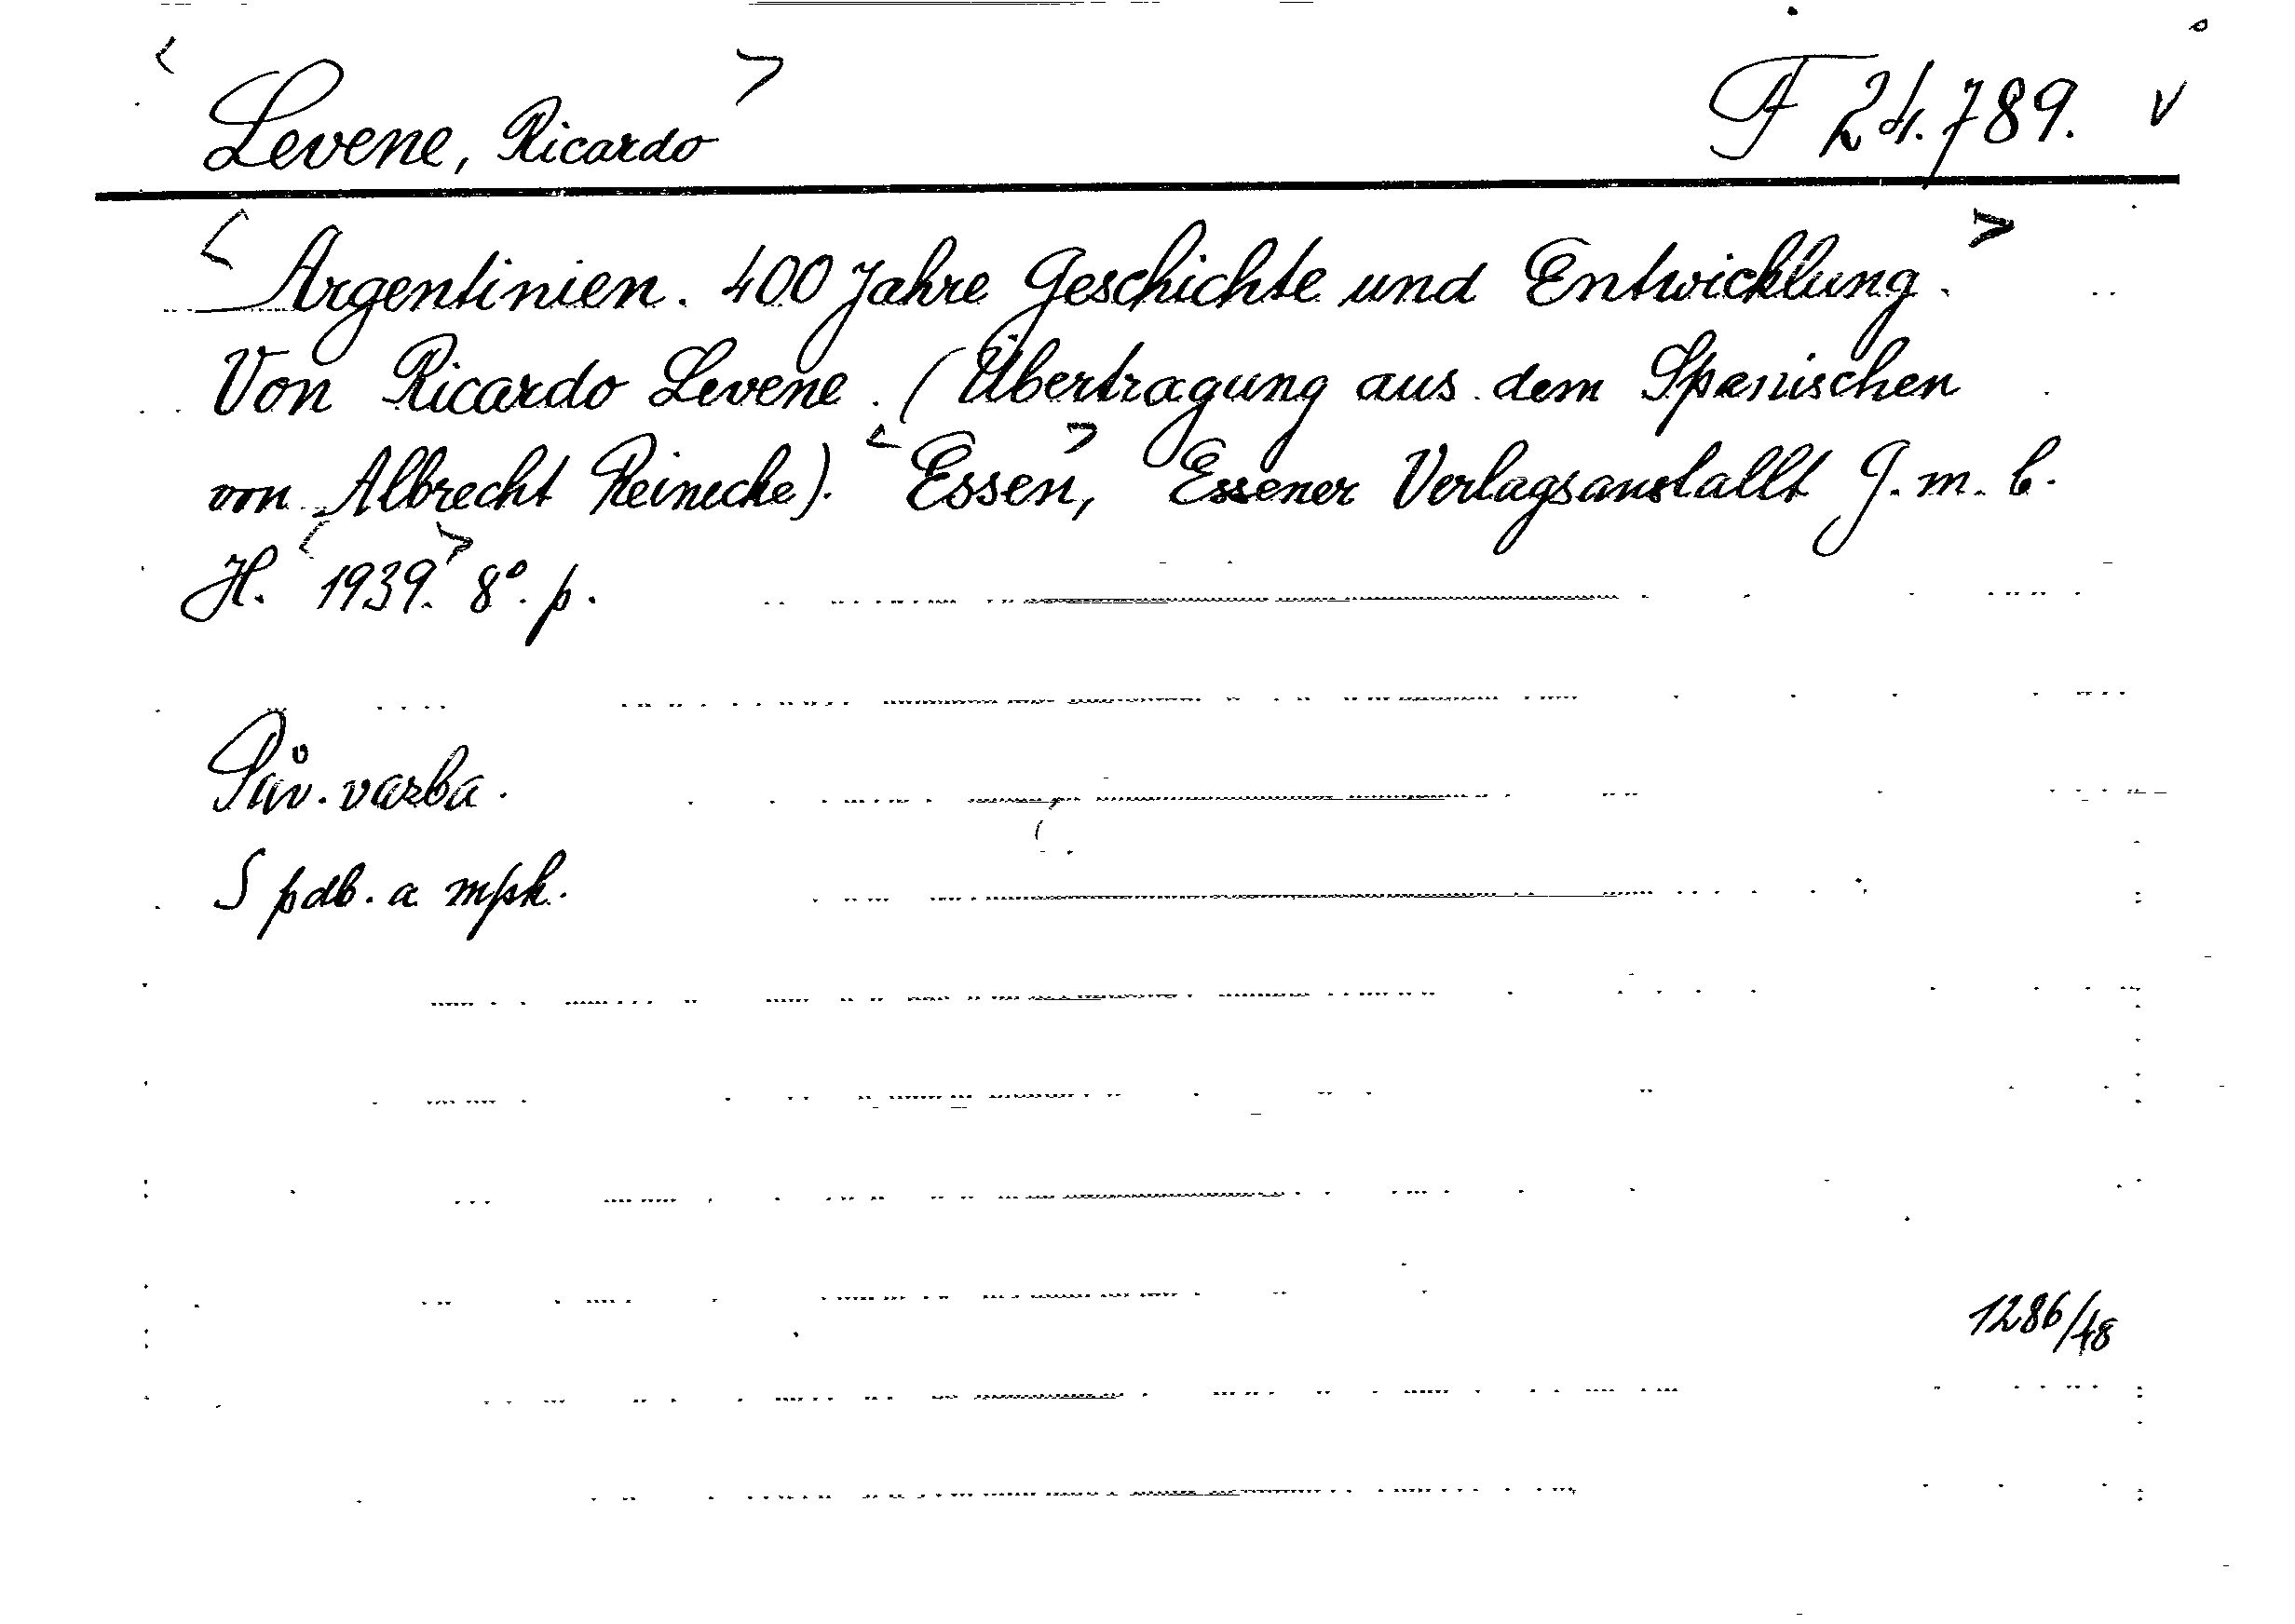 < Levene, Ricardo > F 24.789. v
< Argentinien. 400 Jahre Geschichte und Entwicklung. >
Von Ricardo Levene. (Übertragung aus dem Spanischen
von Albrecht Reinecke). < Essen, > Essener Verlagsanstallt G. m. b.
H. < 1939. > 8°. p.
Pův. vazba.
S pdb. a mpk.
1286/48